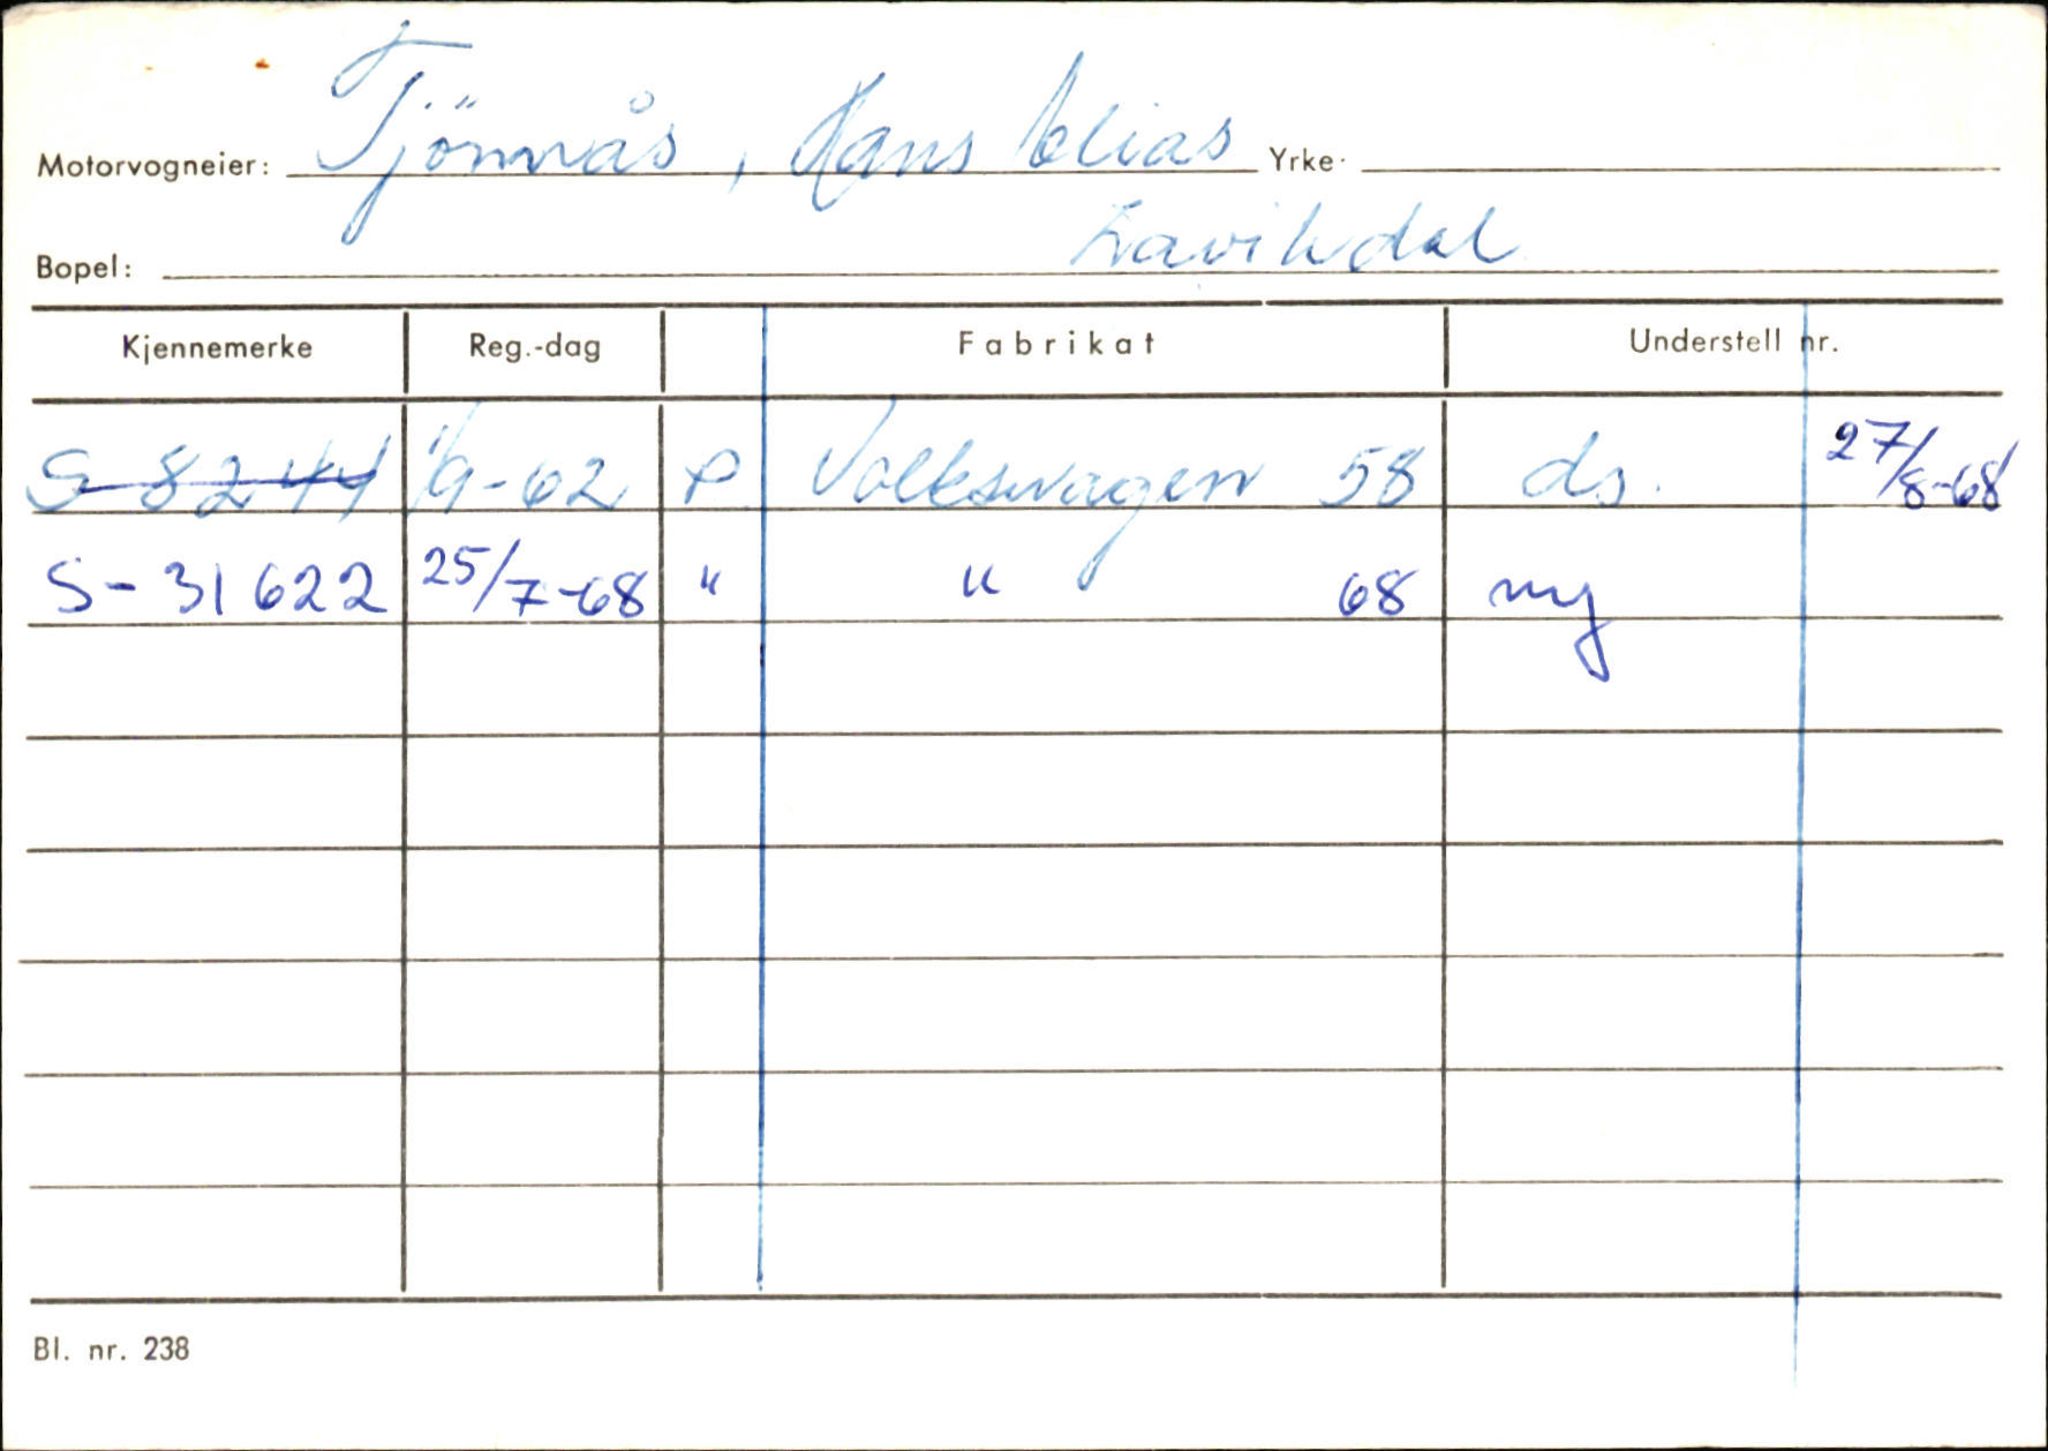 Motorvogneier: Tjönnås, Hans Elias Yrke:
Bopel: Lavikdal
Kjennemerke Reg.-dag Fabrikat Understell nr.
S-8244 1/9-62 P. Volkswagen 58 ds. 27/8-68
S-31622 25/7-68 " " 68 ny
Bl. nr. 238